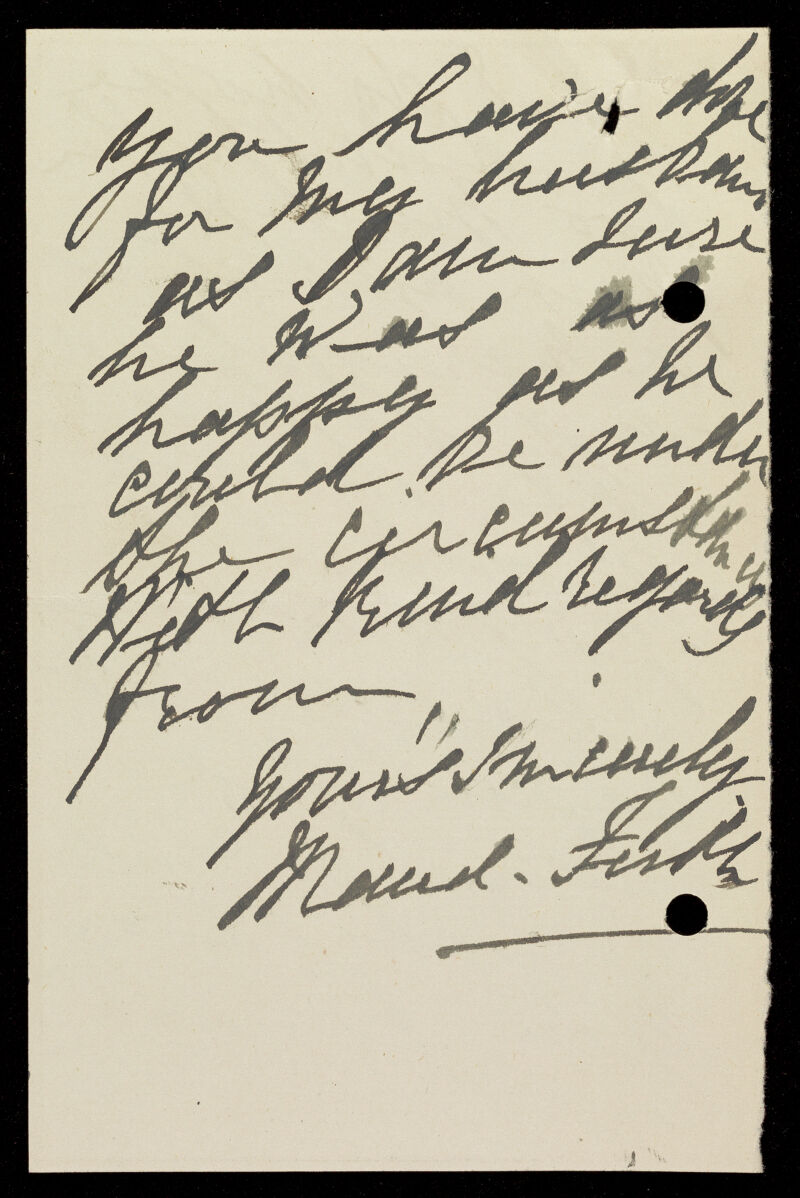 you have done
for my husband
as I am sure
he was as
happy as he
could be under
the circumstances
With kind regards
from
Your's Sincerely
Maud. Firth